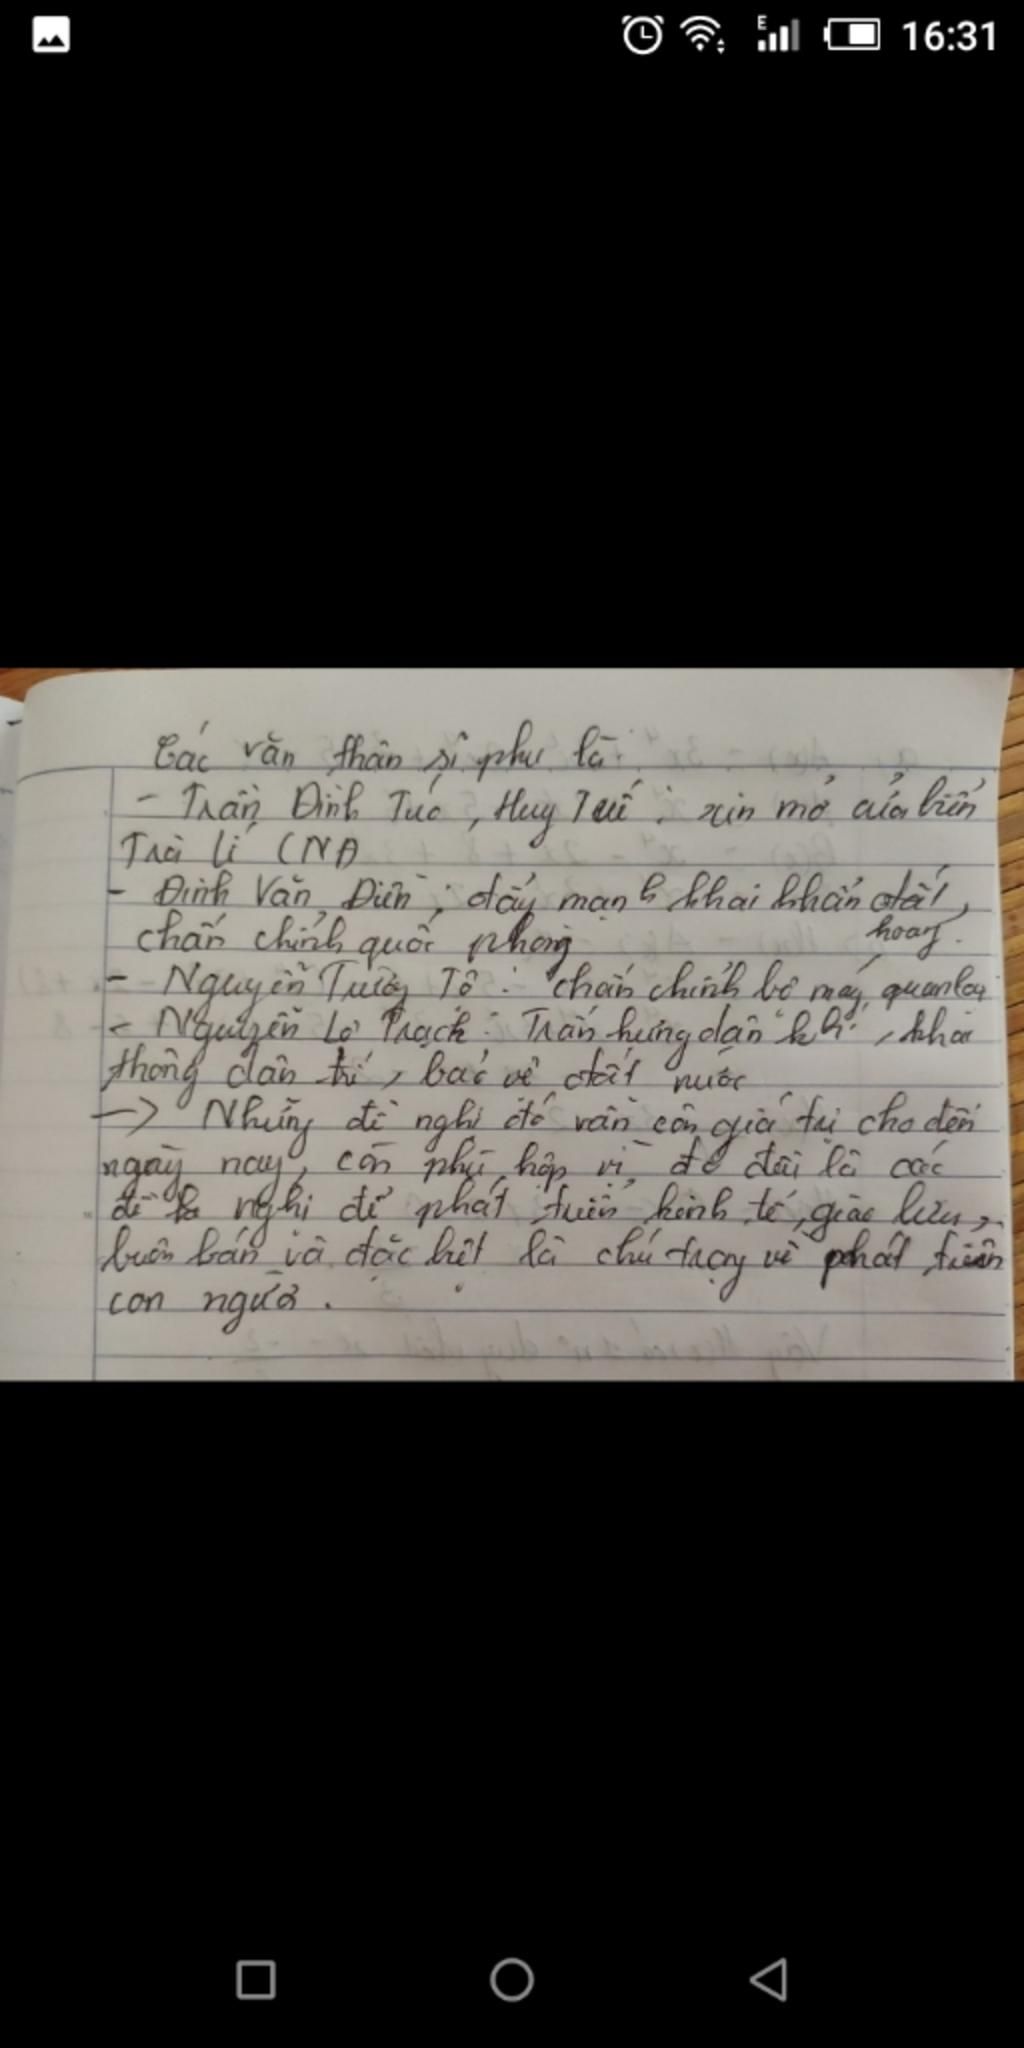 E
16:31
Các văn thân sĩ phu là
- Trần Đình Túc, Huy Tế : xin mở cửa biển
Trà lí (NĐ
- Đinh Văn Điền ; đẩy mạnh khai khẩn đất,
hoang.
chấn chỉnh quốc phòng
- Nguyễn Trường Tộ : chấn chỉnh bộ máy quan lại
- Nguyễn Lộ Trạch : Trấn hưng dân khí, khai
thông dân trí, bảo vệ đất nước
-> Những đề nghị đó vẫn còn giá trị cho đến
ngày nay, còn phù hợp vì đó đều là các
đề nghị để phát triển kinh tế, giao lưu,
buôn bán và đặc biệt là chú trọng về phát triển
con người.